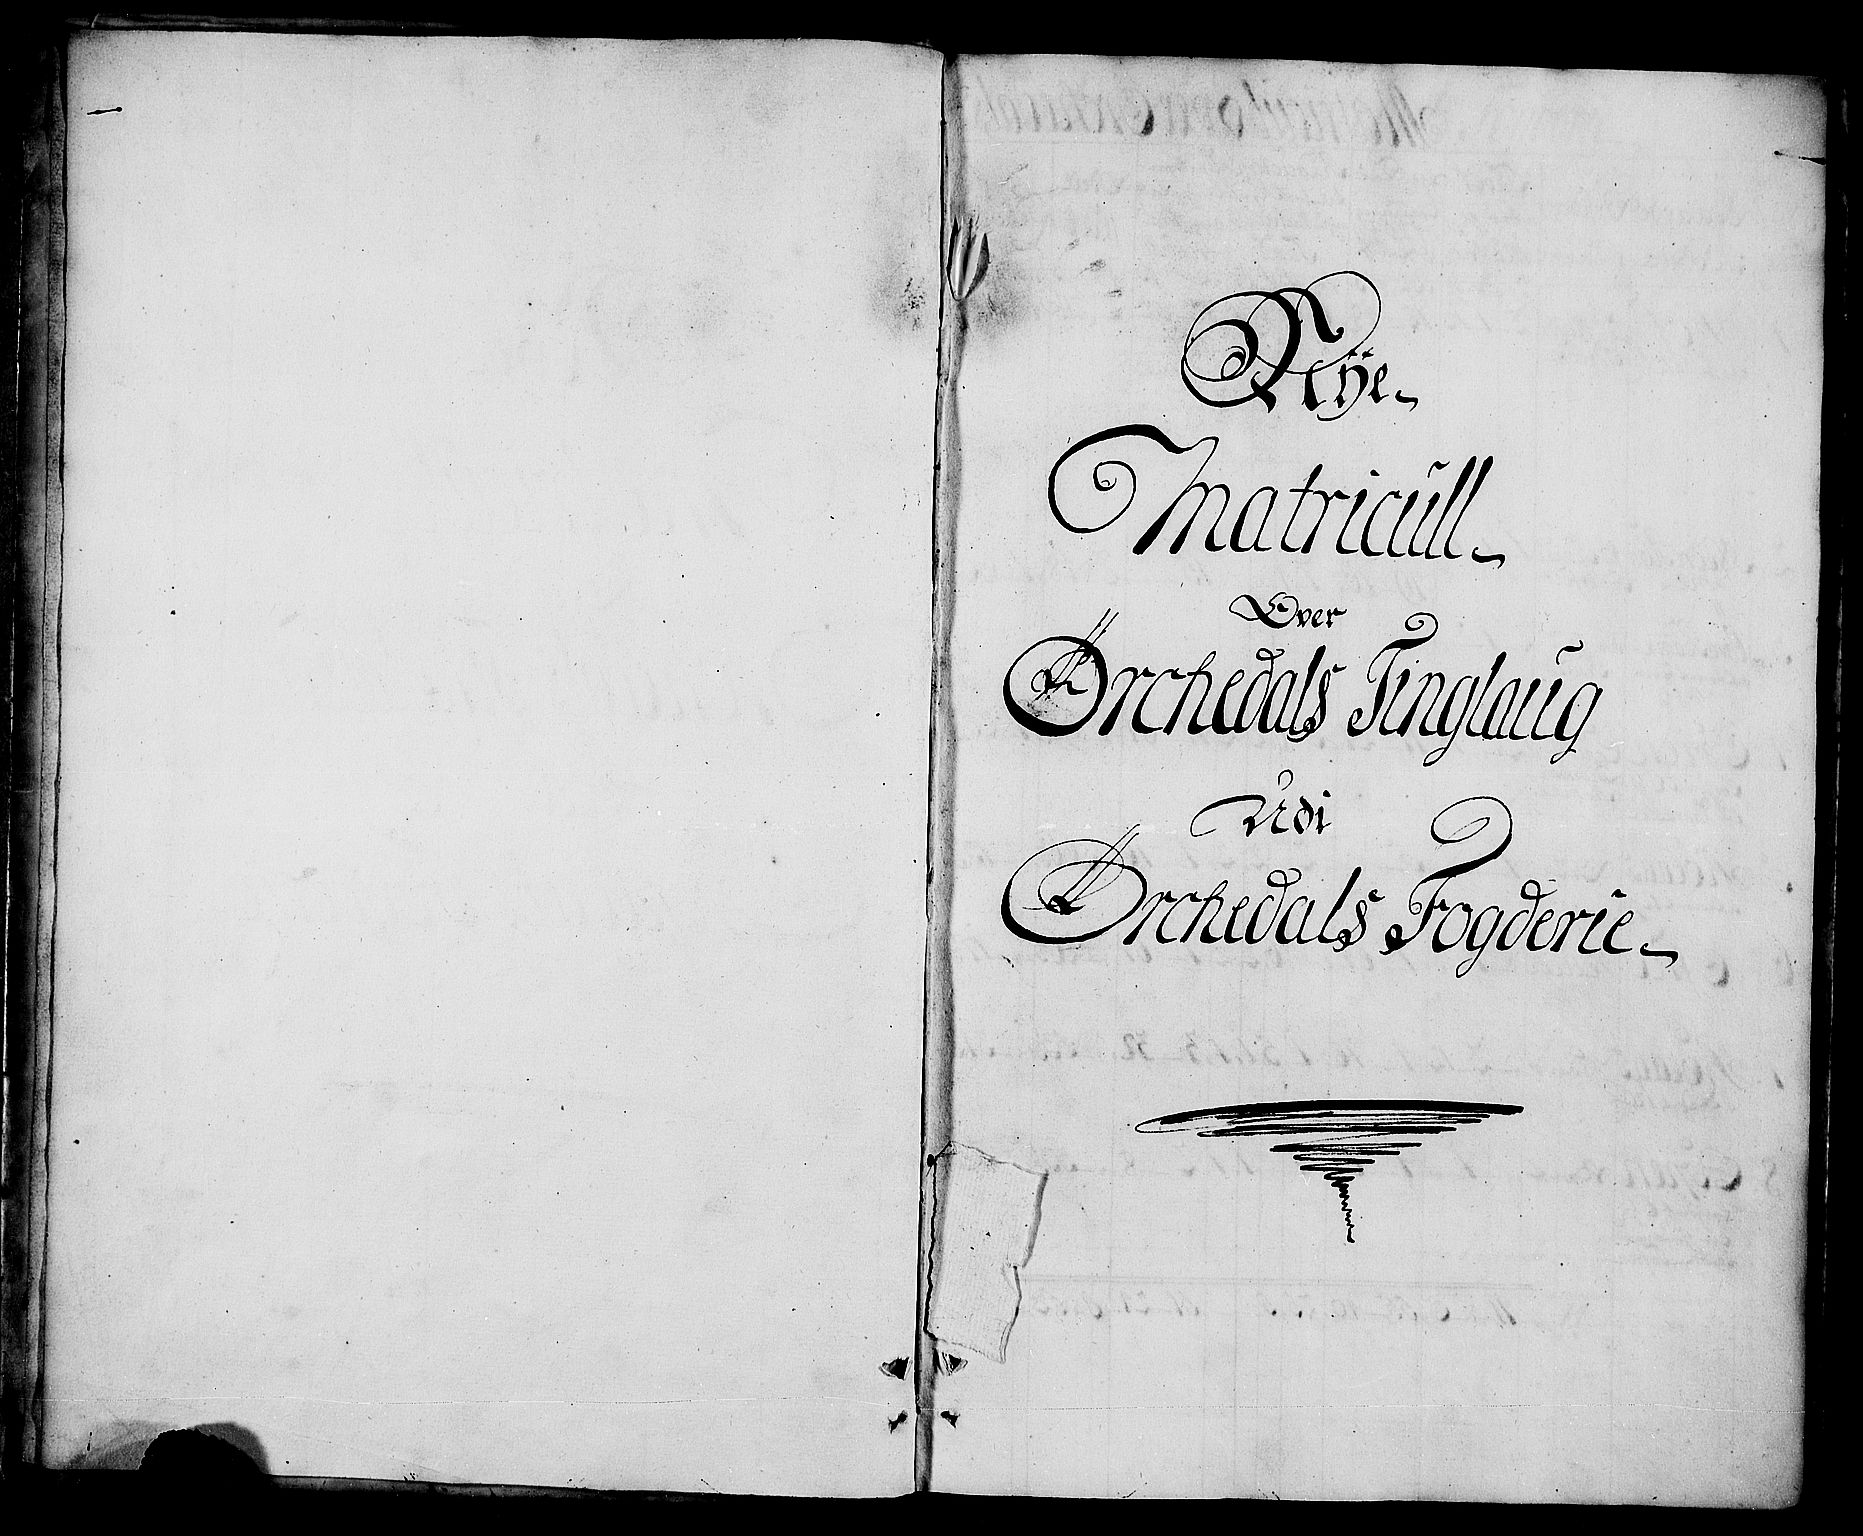 Nÿe
Matricůll
Over
Orchedals Tinglaůg
Udi
Orchedals Fogderie